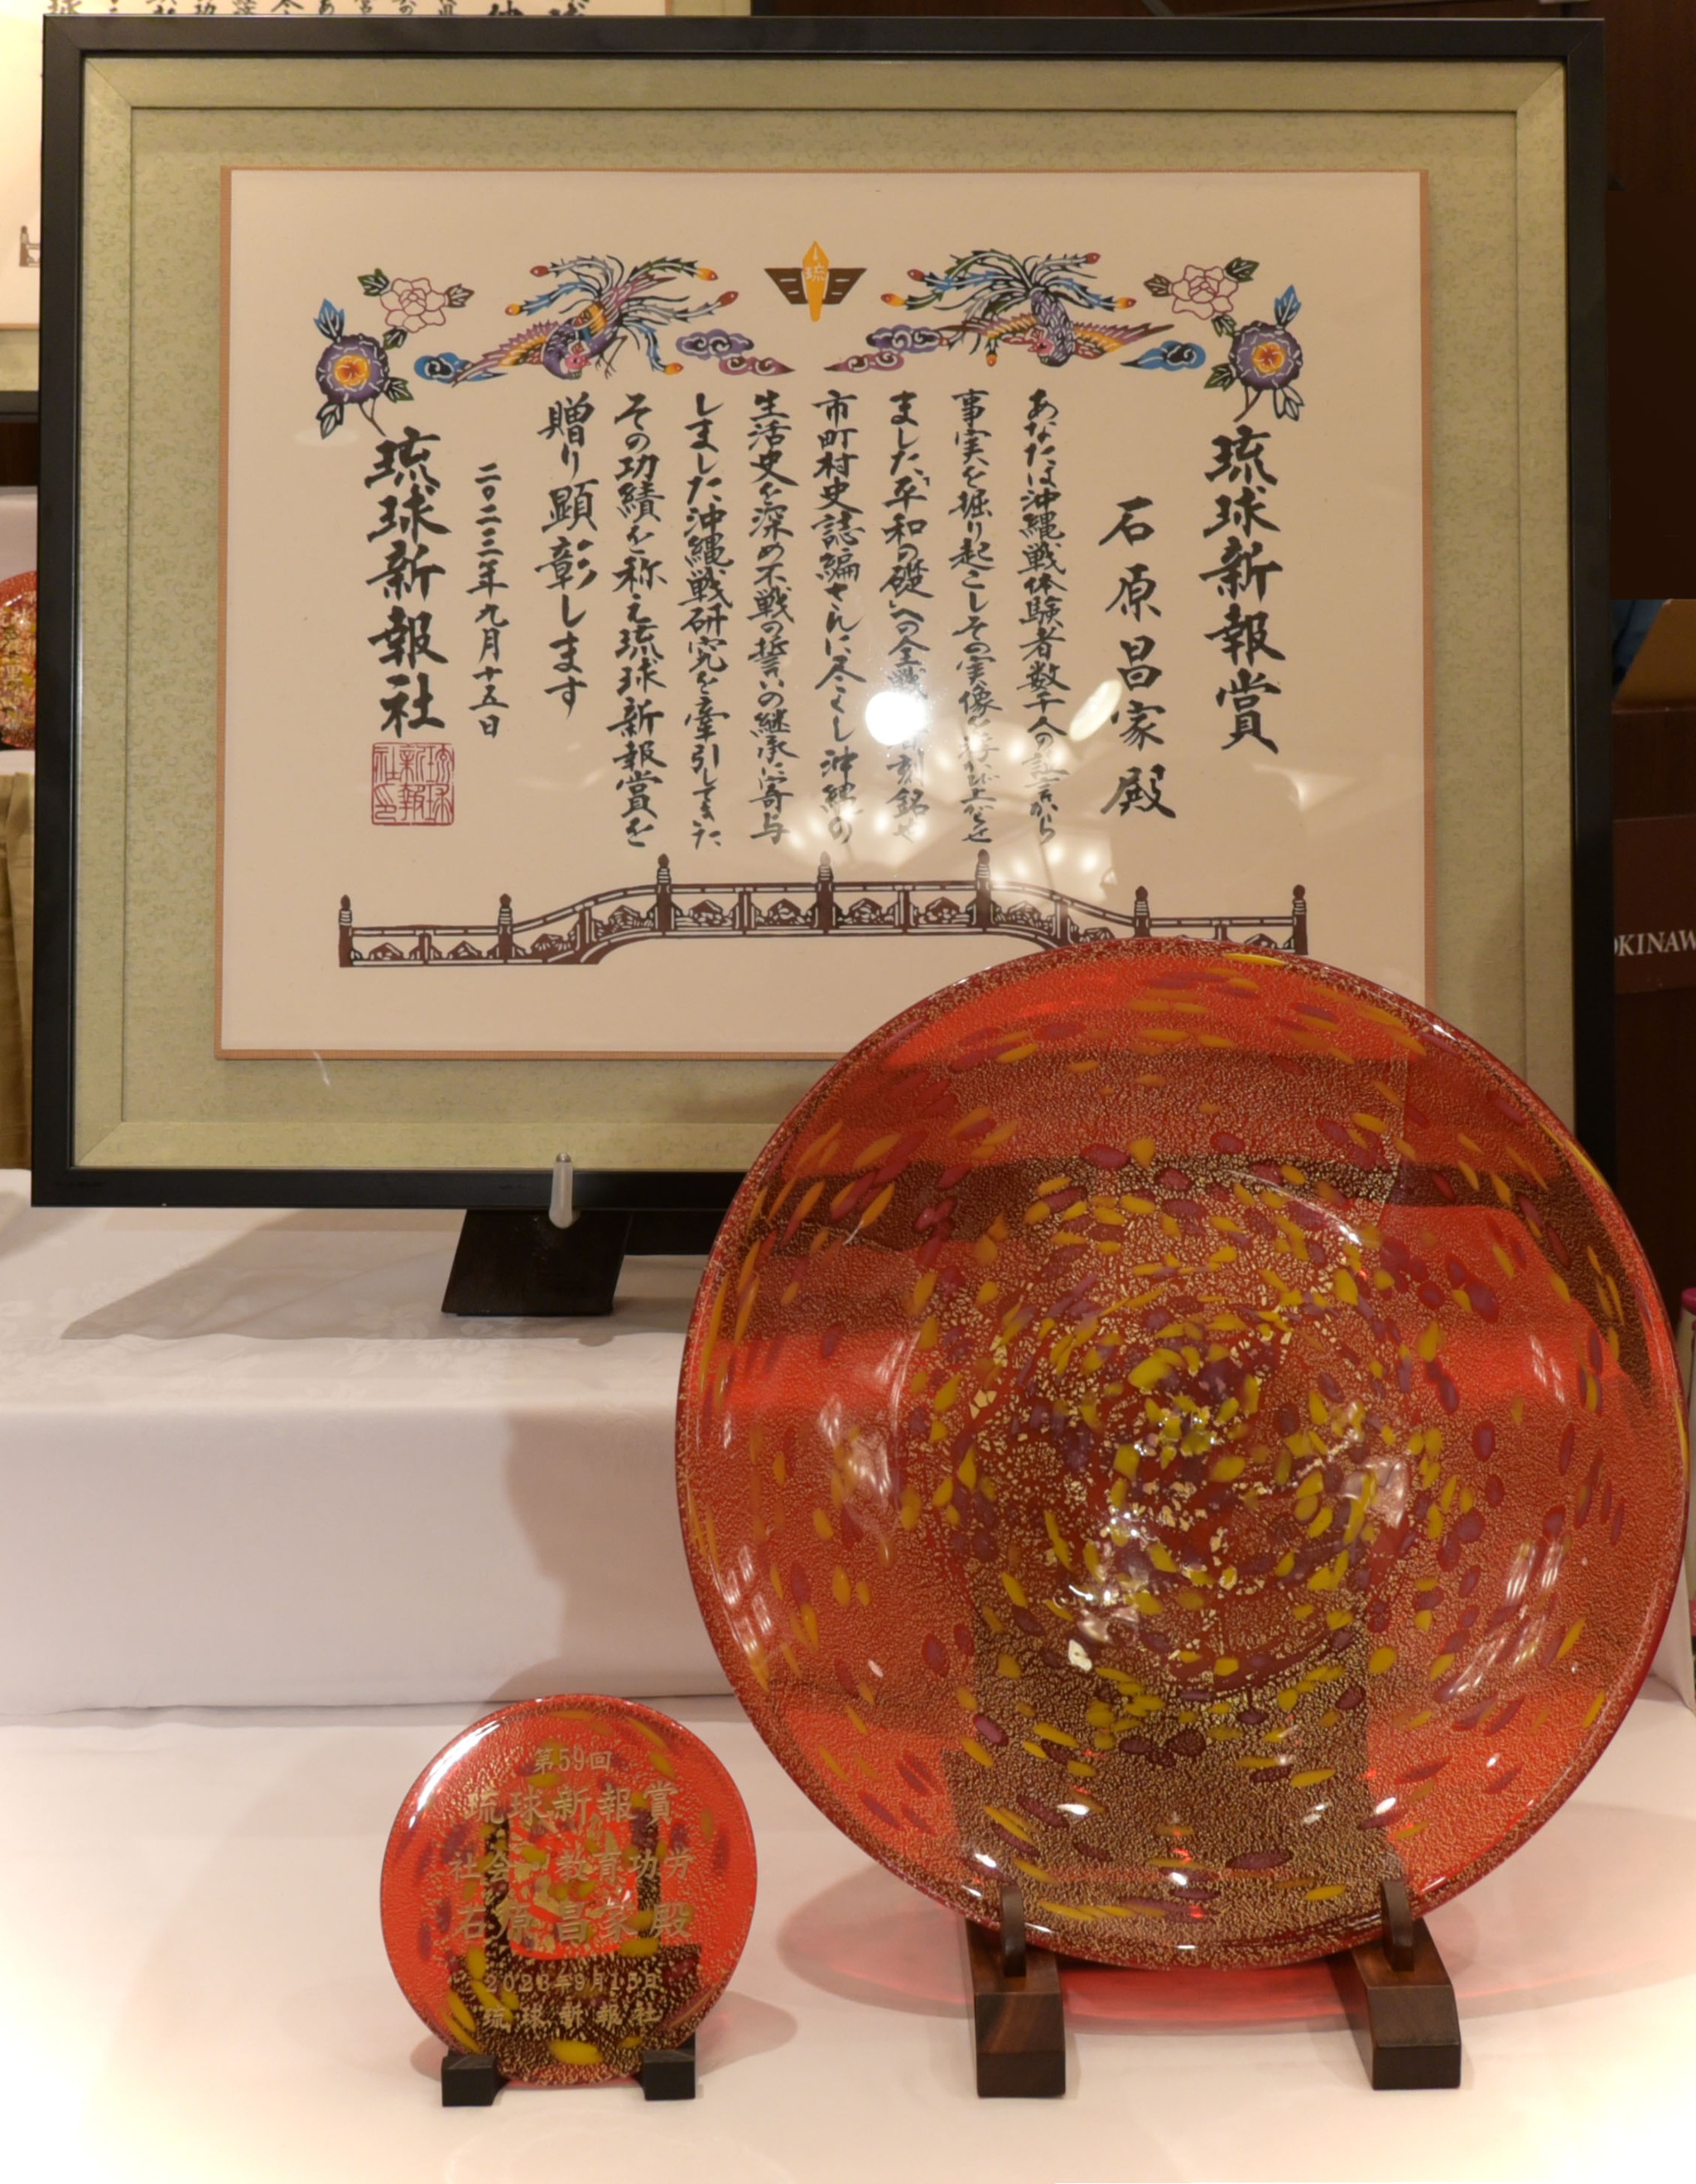 琉球新報賞
石原昌家殿
あなたは沖縄戦体験者数千人の証言から
事実を掘り起こしその実像を浮かび上がらせ
ました「平和の礎」への全戦 者刻銘や
市町村史誌編さんに尽くし沖縄の
生活史を深め不戦の誓いの継承に寄与
しました沖縄戦研究を牽引してきた
その功績を称え琉球新報賞を
贈り顕彰します
二〇二三年九月十五日
琉球新報社
琉球新報社印
琉
第59回
琉球新報賞
社会・教育功労
石原昌家殿
2023年9月15日
琉球新報社
OKINAW